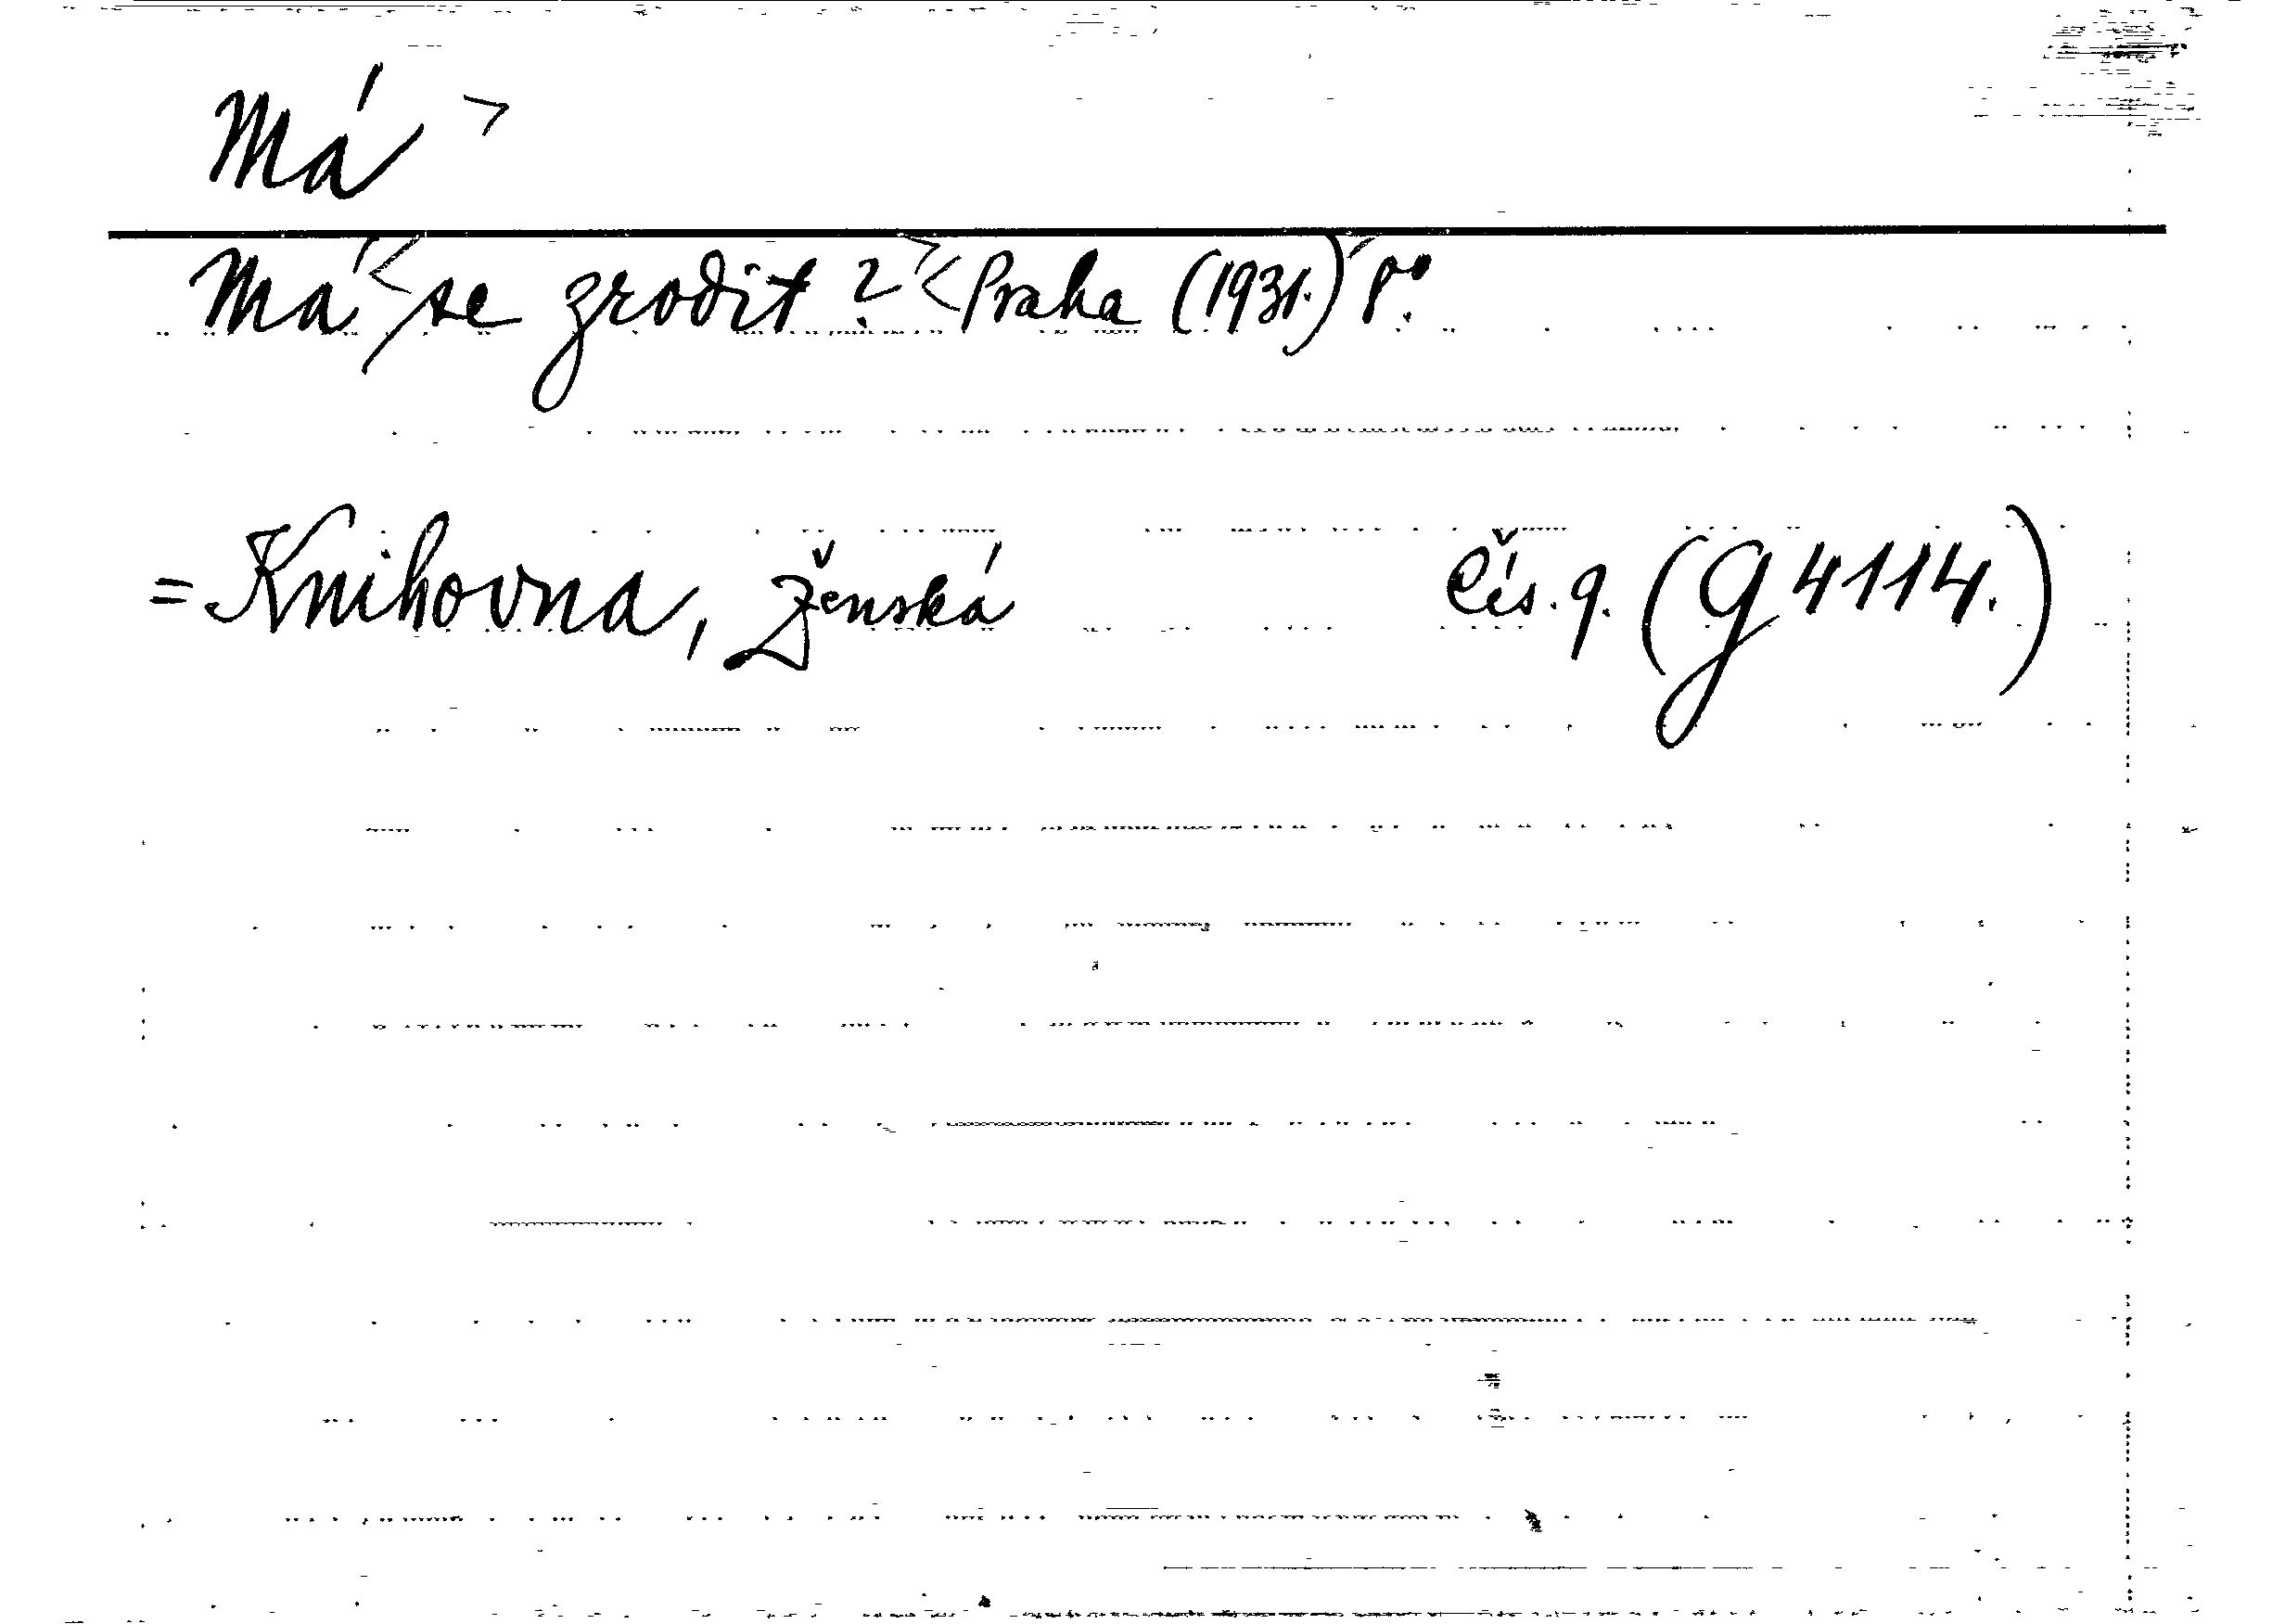 Má
Má se zrodit? Praha (1931.) 8°.
= Knihovna, Ženská Čís. 9. (G 4114.)